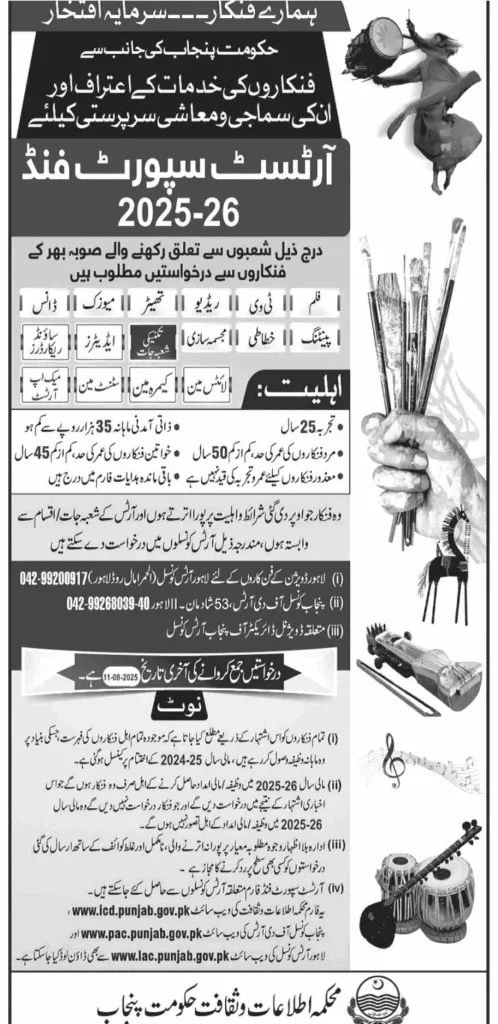 ہمارے فنکار۔۔۔سرمایہ افتخار
حکومت پنجاب کی جانب سے
فنکاروں کی خدمات کے اعتراف اور
ان کی سماجی و معاشی سرپرستی کیلئے
آرٹسٹ سپورٹ فنڈ
2025-26
درج ذیل شعبوں سے تعلق رکھنے والے صوبہ بھر کے
فنکاروں سے درخواستیں مطلوب ہیں
فلم ٹی وی ریڈیو تھیٹر میوزک ڈانس
پینٹنگ خطاطی مجسمہ سازی تکنیکی شعبہ جات ایڈیٹرز ساؤنڈ ریکارڈرز
اہلیت: لائٹس مین کیمرہ مین سٹنٹ مین میک اپ آرٹسٹ
• تجربہ 25 سال • ذاتی آمدنی ماہانہ 35 ہزار روپے سے کم ہو
• مرد فنکاروں کی عمر کی حد، کم از کم 50 سال • خواتین فنکاروں کی عمر کی حد، کم از کم 45 سال
• معذور فنکاروں کیلئے عمر و تجربہ کی قید نہیں ہے • باقی ماندہ ہدایات فارم میں درج ہیں
وہ فنکار جو اوپر دی گئی شرائط و اہلیت پر پورا اترتے ہوں اور آرٹس کے شعبہ جات/اقسام سے
وابستہ ہوں، مندرجہ ذیل آرٹس کونسلوں میں درخواست دے سکتے ہیں
(i) لاہور ڈویژن کے فن کاروں کے لئے لاہور آرٹس کونسل (الحمرا مال روڈ لاہور) 042-99200917
(ii) پنجاب کونسل آف دی آرٹس، 53 شادمان۔ II لاہور 042-99268039-40
(iii) متعلقہ ڈویژنل ڈائریکٹر آف پنجاب آرٹس کونسل
درخواستیں جمع کروانے کی آخری تاریخ 11-08-2025 ہے۔
نوٹ
(i) تمام فنکاروں کو اس اشتہار کے ذریعے مطلع کیا جاتا ہے کہ موجودہ تمام اہل فنکاروں کی فہرست، جسکی بنیاد پر
وہ ماہانہ وظیفہ وصول کر رہے ہیں، مالی سال 25-2024 کے اختتام پر کینسل ہو گئی ہے۔
(ii) مالی سال 26-2025 میں وظیفہ/مالی امداد حاصل کرنے کے اہل صرف وہ فنکار ہوں گے جو اس
اخباری اشتہار کے نتیجے میں درخواست دیں گے اور جو فنکار درخواست نہیں دیں گے وہ مالی سال
2025-26 میں وظیفہ/مالی امداد کے اہل تصور نہیں ہوں گے۔
(iii) ادارہ بلا اظہار وجوہ مطلوبہ معیار پر پورا نہ اترنے والی، نامکمل اور غلط کوائف کے ساتھ ارسال کی گئی
درخواستوں کو کسی بھی سطح پر رد کرنے کا مجاز ہے۔
(iv) آرٹسٹ سپورٹ فنڈ فارم متعلقہ آرٹس کونسلوں سے حاصل کئے جا سکتے ہیں۔
یہ فارم محکمہ اطلاعات و ثقافت کی ویب سائٹ www.icd.punjab.gov.pk ،
پنجاب کونسل آف دی آرٹس کی ویب سائٹ www.pac.punjab.gov.pk اور
لاہور آرٹس کونسل کی ویب سائٹ www.lac.punjab.gov.pk سے بھی ڈاؤن لوڈ کیا جا سکتا ہے۔
محکمہ اطلاعات و ثقافت حکومت پنجاب